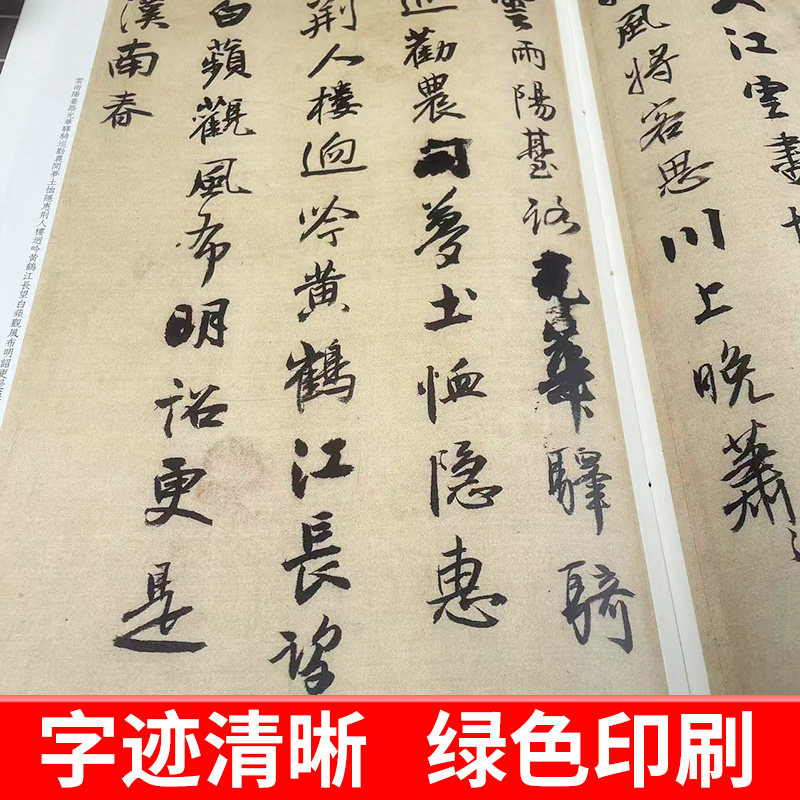 江雲
風将容思川上晚蕭
雲雨陽臺路光華驛騎
巡勸農開夢土恤隐惠
荆人樓迥吟黄鶴江長望
白蘋觀風布明詔更是
漢南春
雲雨陽臺路光華驛騎巡勸農開夢土恤隱惠荆人樓迥吟黄鶴江長望白蘋觀風布明詔更是
字迹清晰 绿色印刷